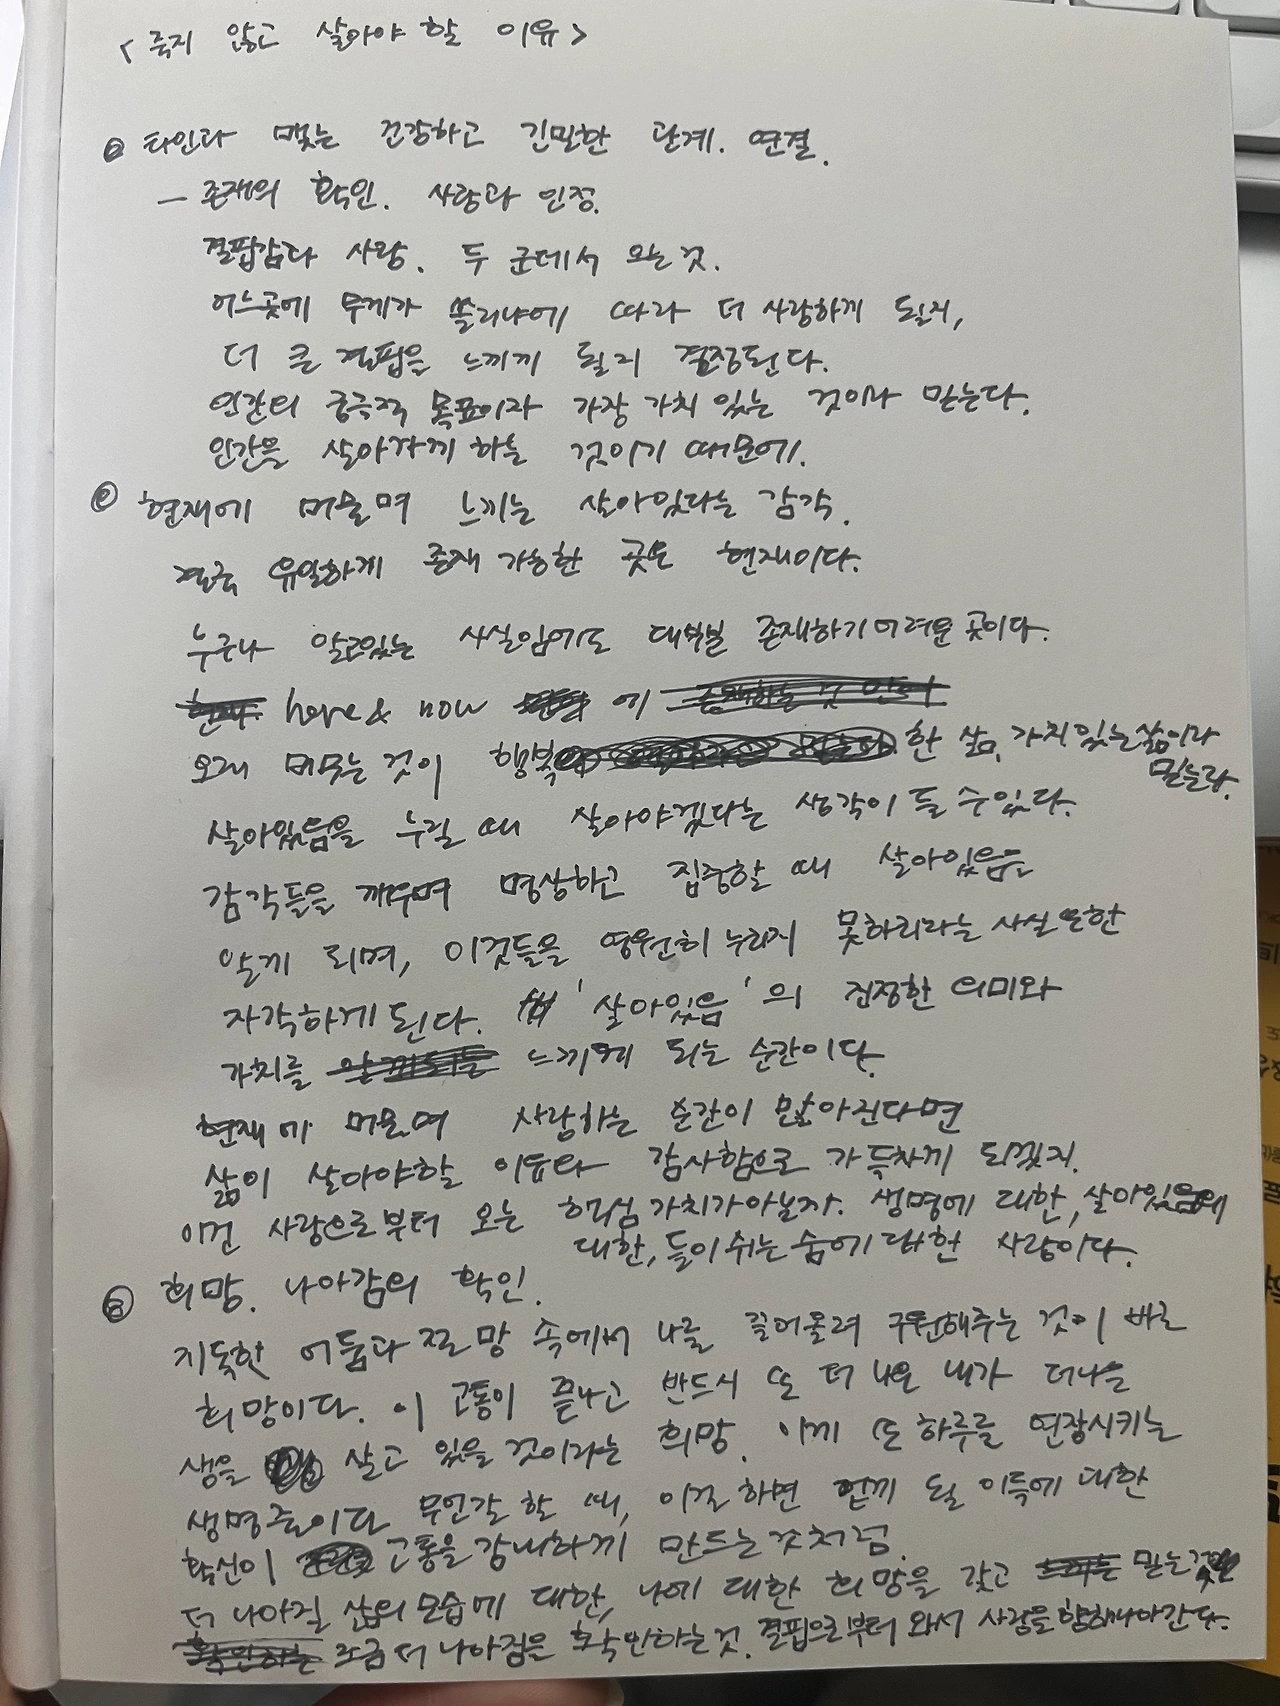 < 죽지 않고 살아야 할 이유 >
타인과 맺는 건강하고 긴밀한 관계. 연결.
— 존재의 확인. 사랑과 인정.
결핍감과 사랑. 두 군데서 오는 것.
어느곳에 무게가 쏠리냐에 따라 더 사랑하게 될지,
더 큰 결핍을 느끼게 될지 결정된다.
인간의 궁극적 목표이자 가장 가치 있는 것이라 믿는다.
인간을 살아가게 하는 것이기 때문에.
② 현재에 머물며 느끼는 살아있다는 감각.
결국 유일하게 존재 가능한 곳은 현재이다.
누구나 알고있는 사실임에도 대부분 존재하기 어려운 곳이다.
here & now 에
오래 머무는 것이 행복한 삶, 가치있는 삶이라
믿는다.
살아있음을 누릴 때 살아야겠다는 생각이 들 수 있다.
감각들을 깨우며 명상하고 집중할 때 살아있음을
알게 되며, 이것들을 영원히 누리지 못하리라는 사실 또한
자각하게 된다. '살아있음'의 진정한 의미와
가치를 느끼게 되는 순간이다.
현재에 머물며 사랑하는 순간이 많아진다면
삶이 살아야할 이유와 감사함으로 가득차게 되겠지.
이건 사랑으로부터 오는 핵심가치가 아닐까. 생명에 대한, 살아있음에
대한, 들이쉬는 숨에 대한 사랑이다.
③ 희망. 나아감의 확인.
지독한 어둠과 절망 속에서 나를 끌어올려 구원해주는 것이 바로
희망이다. 이 고통이 끝나고 반드시 또 더 나은 내가 더나은
생을 살고 있을 것이라는 희망. 이게 또 하루를 연장시키는
생명줄이다. 무언갈 할 때, 이걸 하면 얻게 될 이득에 대한
확신이 고통을 감내하게 만드는 것처럼.
더 나아질 삶의 모습에 대한, 나에 대한 희망을 갖고 믿는것
조금 더 나아짐을 확인하는 것. 결핍으로부터 와서 사랑을 향해나아간다.